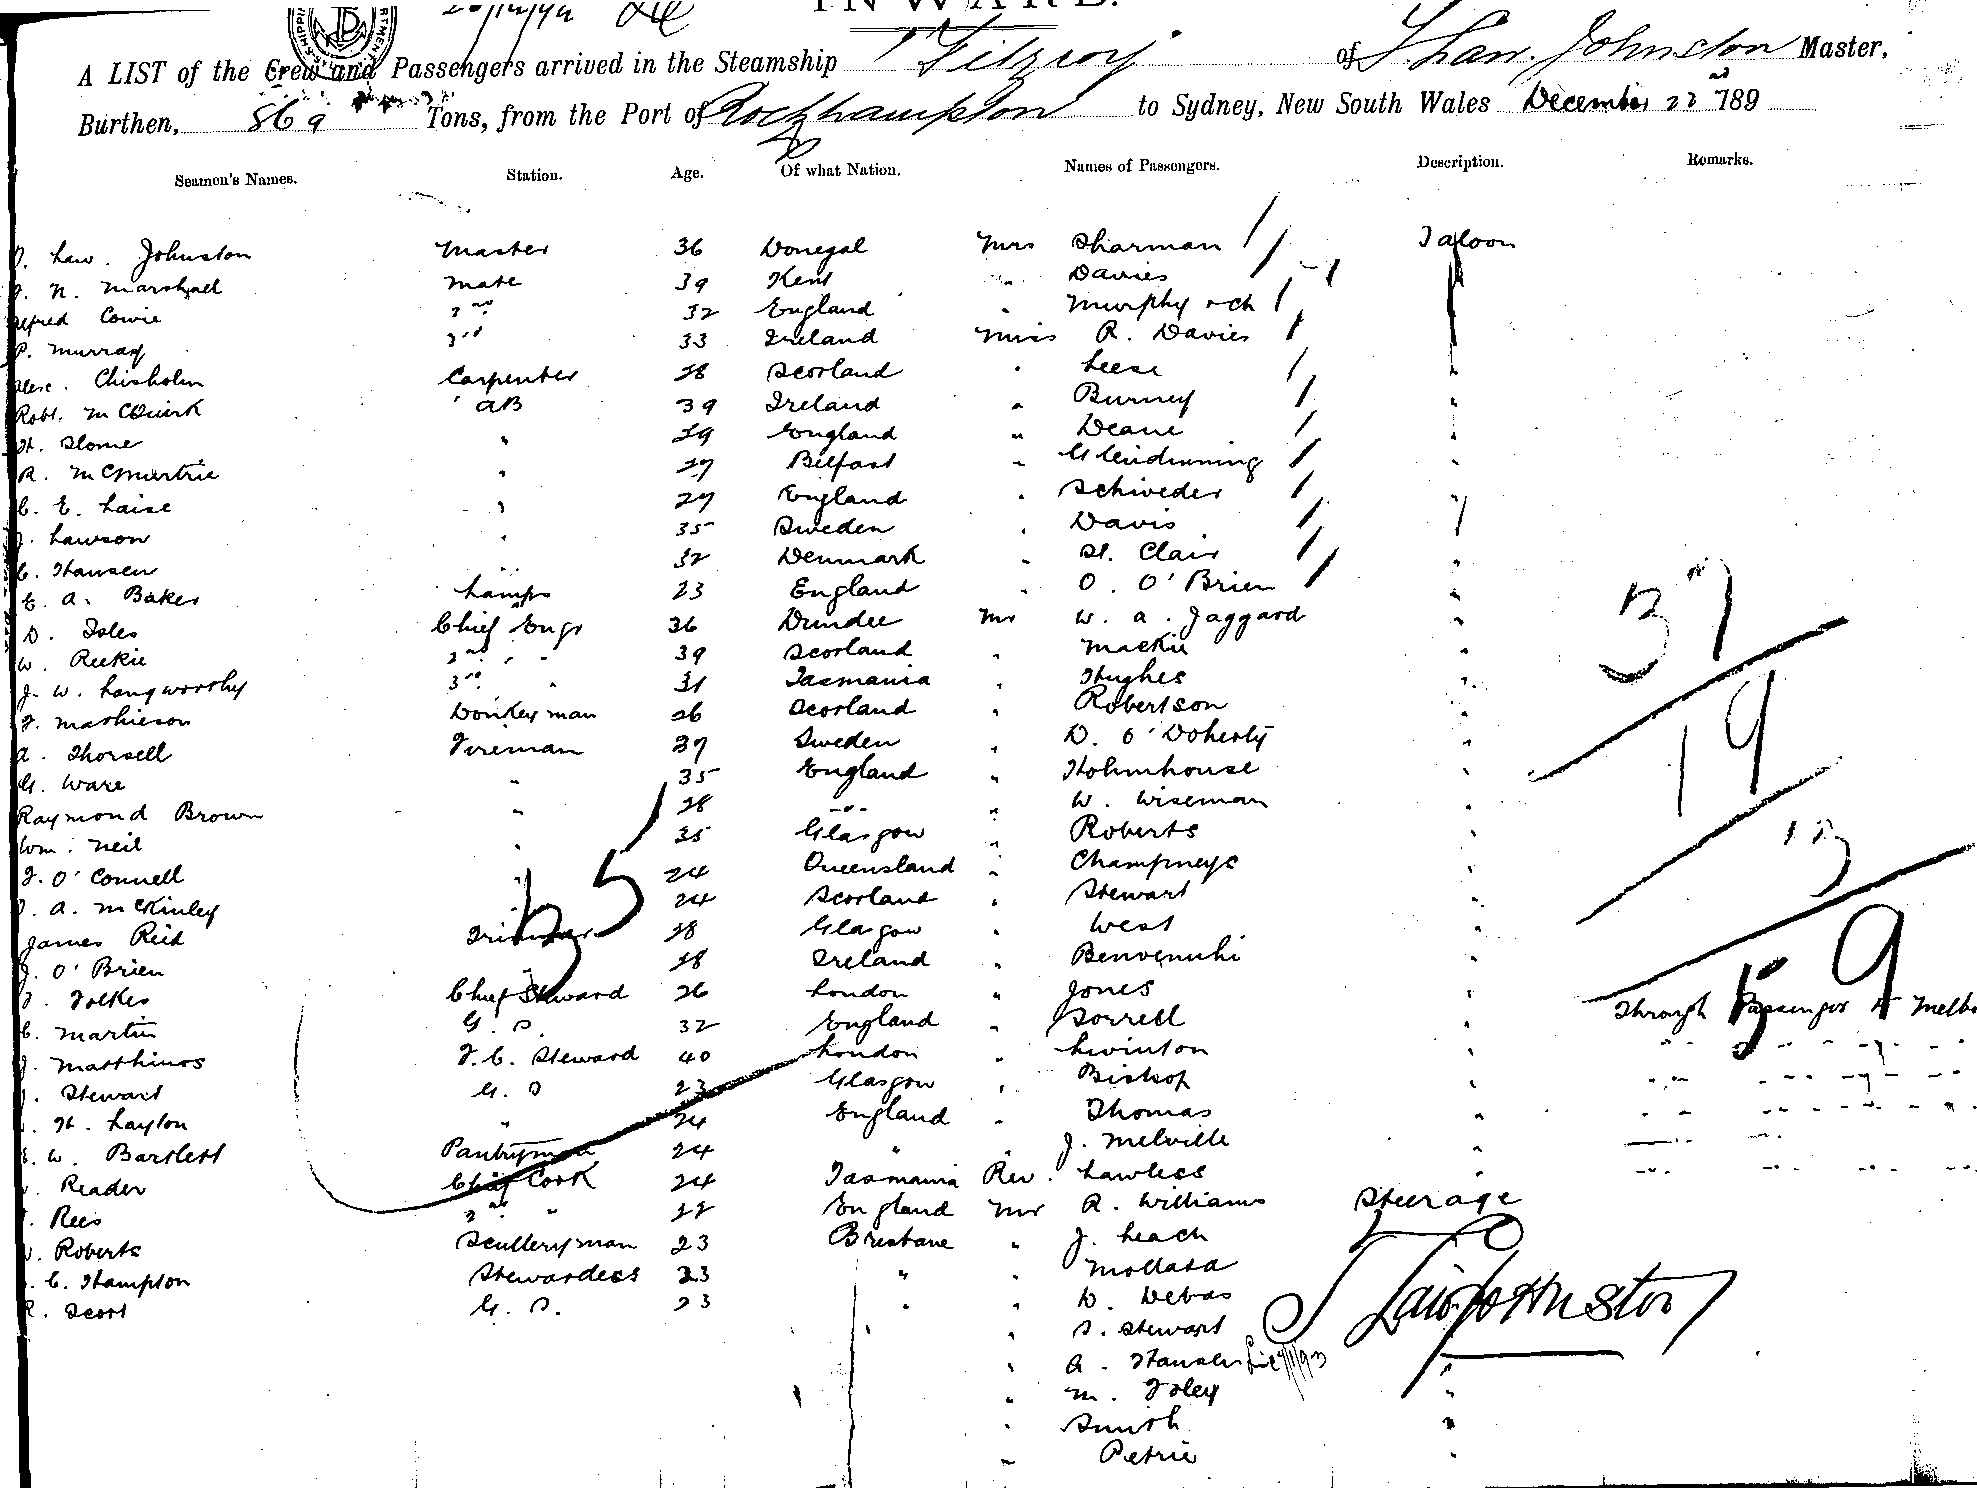 INWARD.
A LIST of the Crew and Passengers arrived in the Steamship Fitzroy of T. Law. Johnston Master,
Burthen, 869 Tons, from the Port of Rockhampton to Sydney, New South Wales December 22nd 189
Seamen's Names. Station. Age. Of what Nation. Names of Passengers. Description. Remarks.
Law. Johnston Master 36 Donegal Mrs Sharman Saloon
N. Marshall Mate 39 Kent " Davies "
Alfred Cowie 2nd 32 England " Murphy & ch "
P. Murray 3rd 33 Ireland Miss R. Davies "
Alex. Chisholm Carpenter 28 Scotland " Leese "
Robt. McQuirk AB 39 Ireland " Burney "
H. Slome " 29 England " Deane "
R. McMurtrie " 27 Belfast " Glendinning "
C. E. Laise " 27 England " Schiveder "
J. Lawson " 35 Sweden " Davis "
C. Hansen " 32 Denmark " St. Clair "
E. A. Baker Lamps 23 England " O. O'Brien "
D. Isles Chief Engr 36 Dundee Mr W. A. Jaggard "
W. Reekie 2nd " 39 Scotland " Mackie "
J. W. Langworthy 3rd " 31 Tasmania " Hughes "
J. Mathieson Donkeyman 26 Scotland " Robertson "
A. Thorsell Fireman 37 Sweden " D. O'Doherty "
G. Ware " 35 England " Holmhouse "
Raymond Brown " 28 -"- " W. Wiseman "
Wm. Neil " 35 Glasgow " Roberts "
J. O'Connell " 24 Queensland " Champneys "
J. A. McKinley " 24 Scotland " Stewart "
James Reid Trimmer 28 Glasgow " West "
J. O'Brien " 28 Ireland " Benvenuhi "
J. Folkes Chief Steward 26 London " Jones " Through Passenger to Melb
C. Martin G. S. 32 England " Sorrell "
J. Matthinos F.C. Steward 40 London " Lwinton "
J. Stewart G. S 23 Glasgow " Bishop "
H. Layton " 24 England " Thomas "
W. Bartlett Pantryman 24 " J. Melville "
Reader Chief Cook 24 Tasmania Rev. Lawless "
Rees 2nd " 22 England Mr R. Williams Steerage
Roberts Scullery man 23 Brisbane " J. Leach
C. Hampton Stewardess 23 " " Mollard
R. Scott G. S. 23 " " D. Debas
" S. Stewart
T Law Johnston
" A. Hansen
" M. Foley "
" Smith "
" Petrie "
37
19
13
59
35